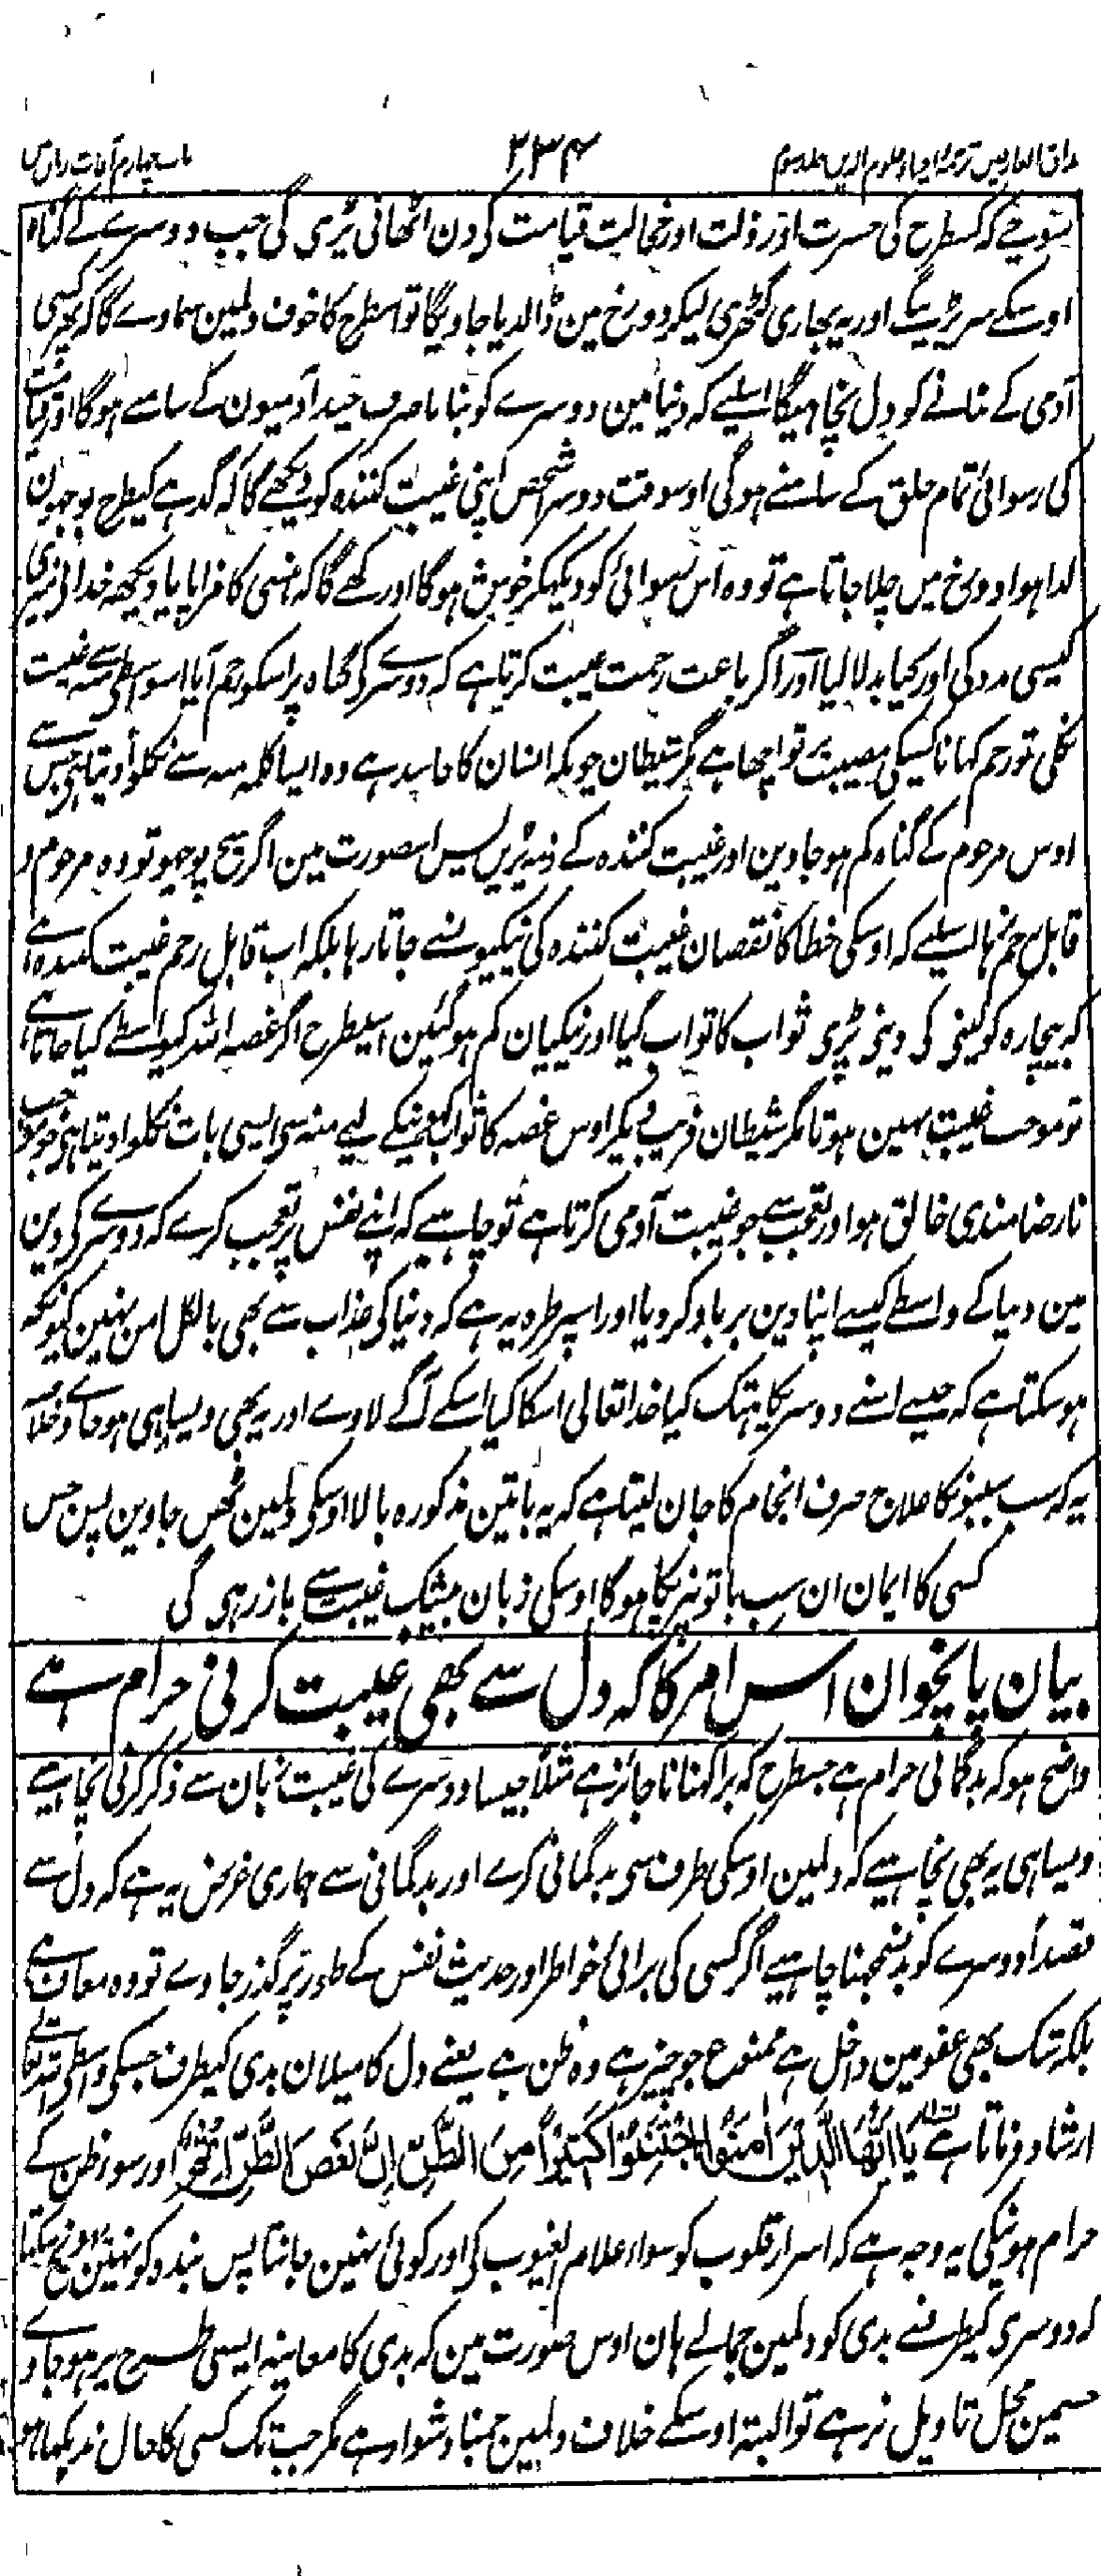 مذاق العارفین ترجمہ احیاء علوم الدین جلد سوم ۲۳۴ باب چہارم آفات زبان میں
سوچے کہ کسطرح کی حسرت اور ذلت اور خجالت قیامت کی دن اٹھانی پڑی گی جب دوسرے کے گناہ
اوسکے سر پڑینگے اور یہ بھاری گٹھری لیکر دوزخ مین ڈالدیا جاویگا تو اسطرح کا خوف دلمین سماوے گا کہ پھر کسی
آدمی کے بنانے کو دل نچاہیگا اسلیے کہ دنیا مین دوسرے کو بنانا صرف چند آدمیون کے سامنے ہوگا اور قیامت
کی رسوائی تمام خلق کے سامنے ہوگی اوسوقت دوسرا شخص اپنی غیبت کنندہ کو دیکھے گا کہ گدہے کیطرح بوجھون
لدا ہوا دوزخ میں چلا جاتا ہے تو وہ اس رسوائی کو دیکھکر خوش ہوگا اور کہے گا کہ ہنسی کا مزا پایا دیکھہ خدا نی میری
کیسی مدد کی اور کیا بدلا لیا اور اگر باعث رحمت غیبت کرتا ہے کہ دوسرے کے گناہ پر اسکو رحم آیا اسواسطے منہ سے غیبت
نکلی تو رحم کہانا کسیکی مصیبت پر تو اچھا ہے مگر شیطان چونکہ انسان کا حاسد ہے وہ ایسا کلمہ منہ سے نکلوا دیتا ہی جس سے
اوس مرحوم کے گناہ کم ہو جاوین اور غیبت کنندہ کے ذمہ پڑیں پس اسصورت مین اگر سچ پوچھو تو وہ مرحوم
قابل رحم نرہا اسلیے کہ اوسکی خطا کا نقصان غیبت کنندہ کی نیکیونسے جاتا رہا بلکہ اب قابل رحم غیبت کنندہ ہے
کہ بیچارہ کو لینی کی دینی پڑی ثواب کا ثواب گیا اور نیکیان کم ہوگئین اسیطرح اگر غصہ اللہ کیواسطے کیا جاتا ہے
تو موجب غیبت نہین ہوتا مگر شیطان فریب دیکر اوس غصہ کا ثواب کھونیکے لیے منہ سی ایسی بات نکلوا دیتا ہی جو موجب
نارضامندی خالق ہو اور تعجب سے جو غیبت آدمی کرتا ہے تو چاہیے کہ اپنے نفس پر تعجب کرے کہ دوسرے کی دین
مین دنیا کے واسطے کیسے اپنا دین برباد کر دیا اور اسپر طرہ یہ ہے کہ دنیا کی عذاب سے بھی بالکل امن نہین کیونکہ
ہو سکتا ہے کہ جیسے اسنے دوسریکا ہتک کیا خدا تعالی اسکا کیا اسکے آگے لاوے اور یہ بھی ویسا ہی ہو جاوے خلاصہ
یہ کہ سب سببونکا علاج صرف انجام کا جان لینا ہے کہ یہ باتین مذکورہ بالا اوسکی دلمین گھس جاوین پس جس
کسی کا ایمان ان سب باتونپر پکا ہوگا اوسکی زبان بیشک غیبت سے باز رہی گی
بیان پانچوان اس امر کا کہ دل سے بھی غیبت کرنی حرام ہے
واضح ہو کہ بدگمانی حرام ہے جسطرح کہ برا کہنا ناجائز ہے مثلاً جیسا دوسرے کی غیبت زبان سے ذکر کرنی نچاہیے
ویسا ہی یہ بھی نچاہیے کہ دلمین اوسکی طرف سی بدگمانی کرے اور بدگمانی سے ہماری غرض یہ ہے کہ دل سے
قصداً دوسرے کو بد نسمجہنا چاہیے اگر کسی کی برائی خواطر اور حدیث نفس کے طور پر گذر جاوے تو وہ معاف ہے
بلکہ شک بھی عفو مین داخل ہے ممنوع جو چیز ہے وہ ظن ہے یعنے دل کا میلان بدی کیطرف جسکی واسطی اللہ تعالے
ارشاد فرماتا ہے یَا اَیُّھَا الَّذِیْنَ اٰمَنُوا اجْتَنِبُوْا کَثِیْرًا مِنَ الظَّنِّ اِنَّ بَعْضَ الظَّنِّ اِثْمٌ اور سوء ظن کے
حرام ہونیکی یہ وجہ ہے کہ اسرار قلوب کو سواء علام الغیوب کی اور کوئی نہین جانتا پس بندہ کو نہین پہونچ سکتا
کہ دوسری کیطرفسے بدی کو دلمین جمالے ہان اوس صورت مین کہ بدی کا معاینہ ایسی طرح پر ہو جاوے
جسمین محل تاویل نرہے تو البتہ اوسکے خلاف دلمین جمنا دشوار ہے مگر جب تک کسی کا حال ندیکھا